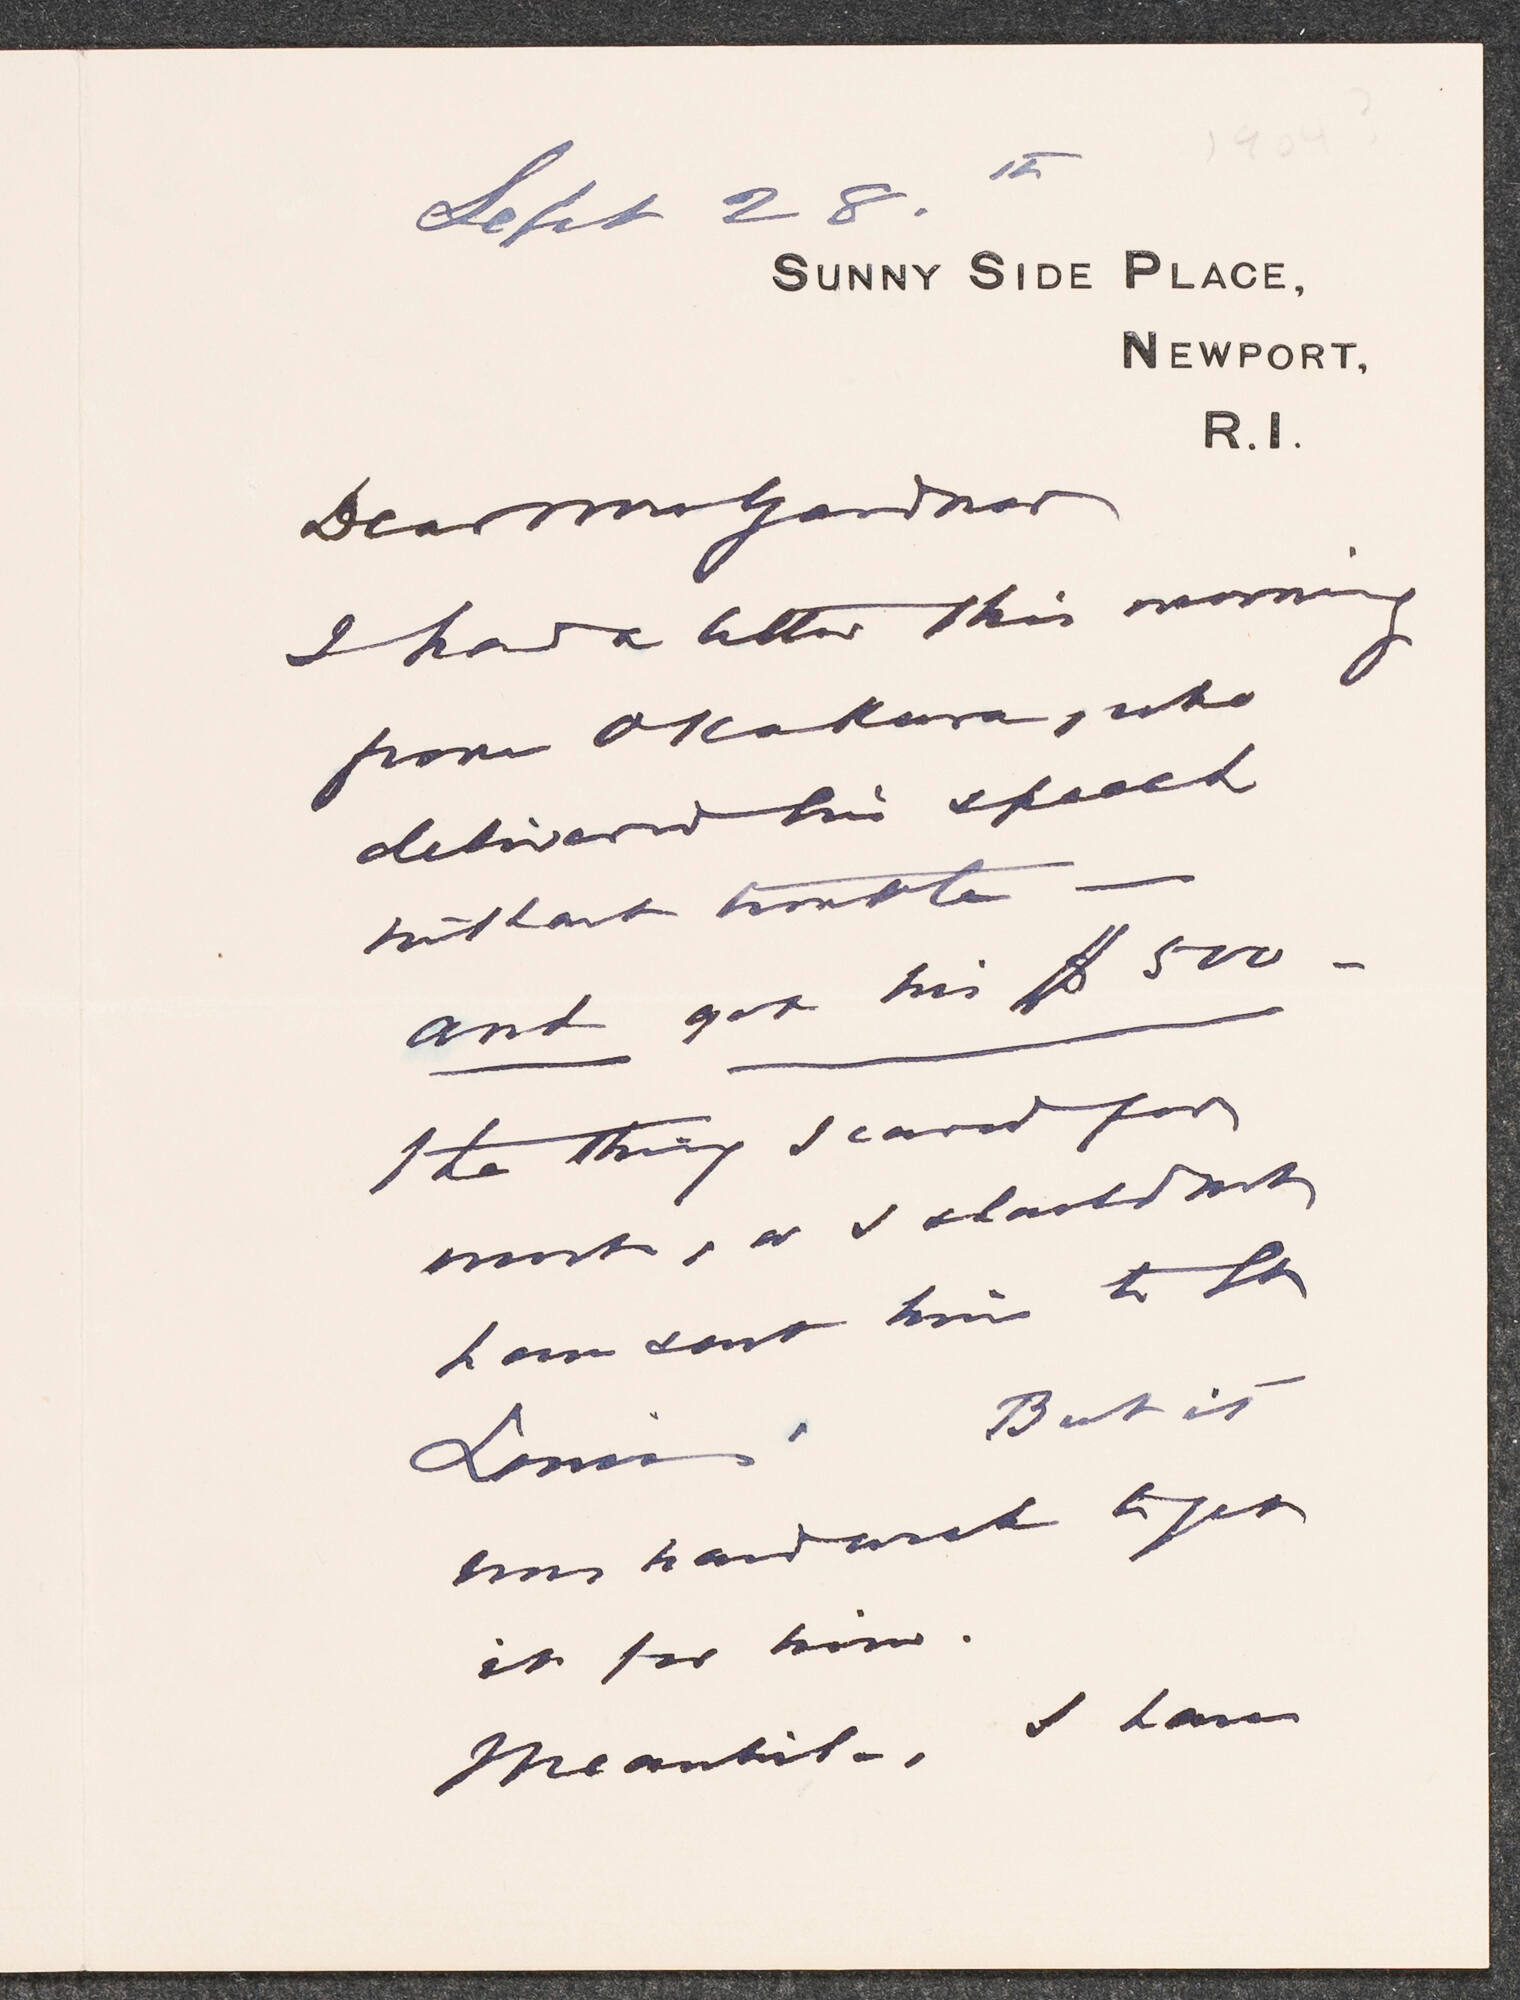 1904?
Sept 28.th
SUNNY SIDE PLACE,
NEWPORT,
R.I.
Dear Mrs Gardner
I had a letter this morning
from Okakura, who
delivered his speech
without trouble —
and got his $500 -
the thing I cared for
most, or I should not
have sent him to St
Louis. But it
was hard work to get
it for him.
Meanwhile, I have